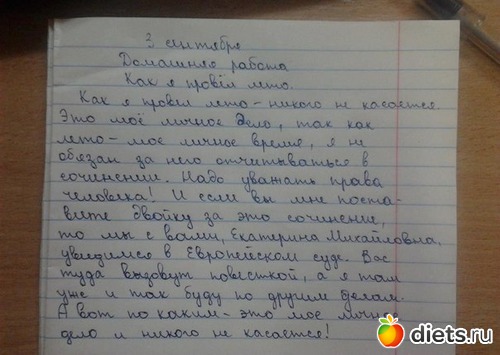 3 сентября
Домашняя работа
Как я провёл лето.
Как я провёл лето – никого не касается.
Это моё личное дело, так как
лето – мое личное время, я не
обязан за него отчитываться в
сочинении. Надо уважать права
человека! И если вы мне поста-
вите двойку за это сочинение,
то мы с вами, Екатерина Михайловна,
увидимся в Европейском суде. Вас
туда вызовут повесткой, а я там
уже и так буду по другим делам.
А вот по каким – это мое личное
дело и никого не касается!
diets.ru